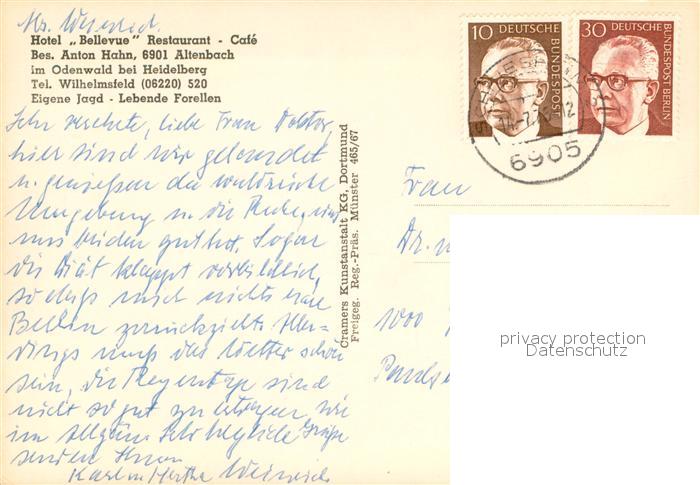 Hotel „Bellevue" Restaurant - Café
Bes. Anton Hahn, 6901 Altenbach
im Odenwald bei Heidelberg
Tel. Wilhelmsfeld (06220) 520
Eigene Jagd - Lebende Forellen
Sehr verehrte, liebe Frau Doktor,
hier sind wir gelandet
u. genießen die waldreiche
Umgebung u. die Ruhe, die
uns beiden gut tut. Sogar
die Diät klappt vorbildlich,
so daß mich nichts nach
Berlin zurückzieht. Aller-
dings muß das Wetter schön
sein, die Regentage sind
nicht so gut zu ertragen, wie
im allgem. Sehr herzliche Grüße
senden Ihnen
Karl u. Hertha Weinrich
Cramers Kunstanstalt KG, Dortmund
Freigeg. Reg.-Präs. Münster 465/67
10 DEUTSCHE BUNDESPOST
30 DEUTSCHE BUNDESPOST BERLIN
6905
Frau
Dr.
1000
privacy protection
Datenschutz